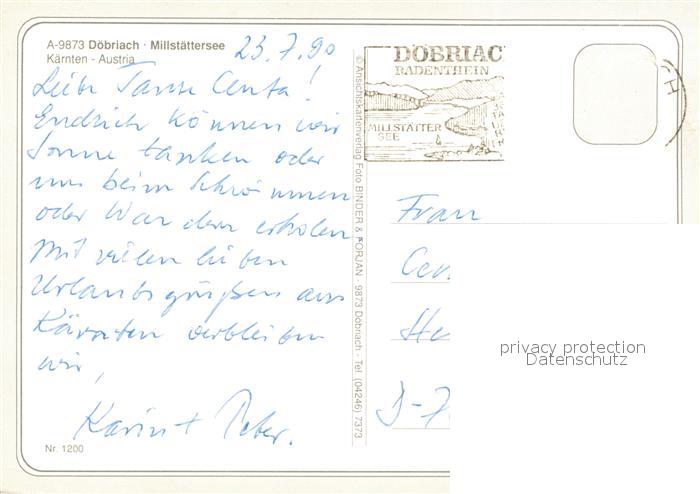 A-9873 Döbriach · Millstättersee
Kärnten - Austria
23.7.90
Liebe Tante Centa!
Endlich können wir
Sonne tanken oder
uns beim Schwimmen
oder Wandern erholen
Mit vielen lieben
Urlaubsgrüßen aus
Kärnten verbleiben
wir,
Karin + Peter.
Nr. 1200
© Ansichtskartenverlag Foto BINDER & PORJAN - 9873 Döbriach - Tel. (04246) 7373
DÖBRIAC
RADENTHEIN
MILLSTÄTTER
SEE
CH
Frau
Cen
He
D-7
privacy protection
Datenschutz